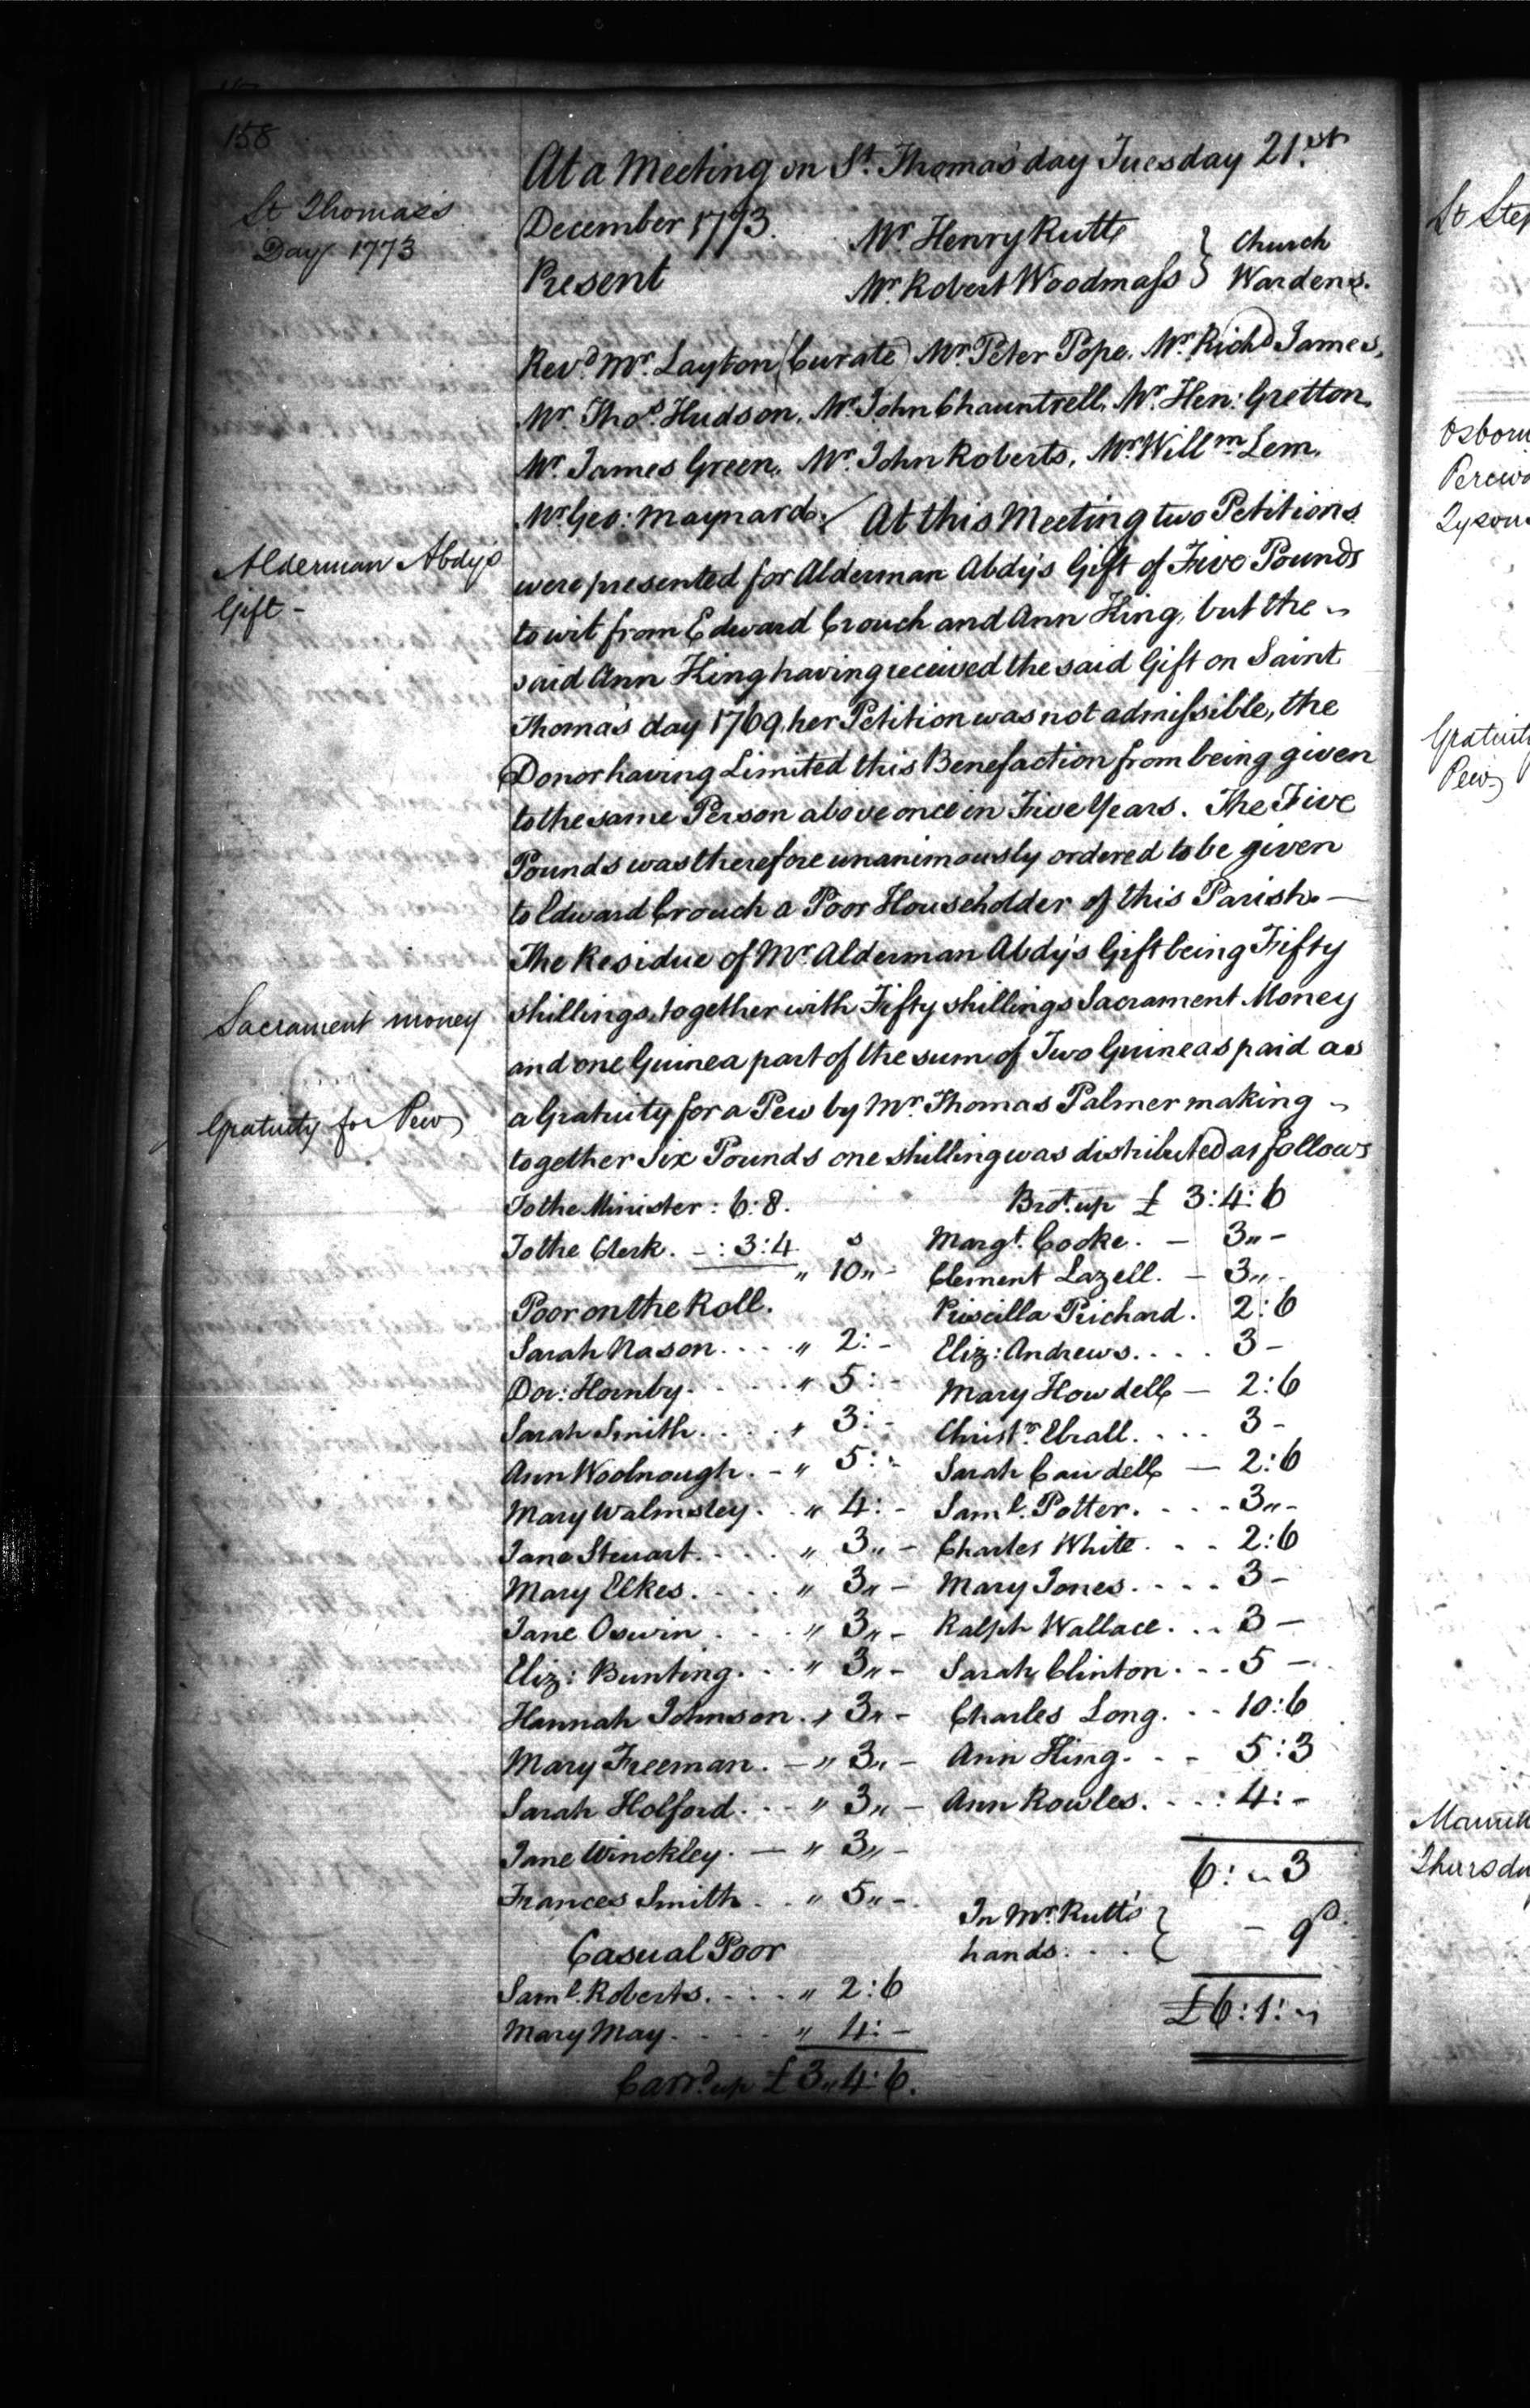 158
At a Meeting on St. Thomas day Tuesday 21.st
St Thomas's
Day 1773
December 1773.
Mr. Henry Rutt } Church
Present
Mr. Robert Woodmass } Wardens.
Revd. Mr. Layton (Curate) Mr. Peter Pope, Mr. Richd James,
Mr. Thos. Hudson, Mr. John Chauntrell, Mr. Hen: Gretton,
Mr. James Green, Mr. John Roberts, Mr. Willm Lem,
Mr Geo: Maynard. / At this Meeting two Petitions
Alderman Abdy's
Gift -
were presented for Alderman Abdy's Gift of Five Pounds
to wit from Edward Crouch and Ann King, but the
said Ann King having received the said Gift on Saint
Thomas day 1769, her Petition was not admissible, the
Donor having Limited this Benefaction from being given
to the same Person above once in Five Years. The Five
Pounds was therefore unanimously ordered to be given
to Edward Crouch a Poor Householder of this Parish. —
The Residue of Mr. Alderman Abdy's Gift being Fifty
Sacrament money
shillings, together with Fifty shillings Sacrament Money
and one Guinea part of the sum of Two Guineas paid as
Gratuity for Pew
a Gratuity for a Pew by Mr. Thomas Palmer making
together Six Pounds one shilling was distributed as follows
To the Minister : 6:8.
To the Clerk. - : 3:4
s
" 10" -
Poor on the Roll.
Sarah Nason. . . . " 2: -
Dor: Hornby. . . . " 5: -
Sarah Smith. . . . " 3: -
Ann Woolnough. - " 5: -
Mary Walmsley. . " 4: -
Jane Stewart. . . . " 3" -
Mary Elkes. . . . " 3" -
Jane Oswin . . . " 3" -
Eliz: Bunting. . . " 3" -
Hannah Johnson. " 3" -
Mary Freeman. - " 3" -
Sarah Holford. . . " 3" -
Jane Winckley. — " 3" -
Frances Smith. . . " 5" -
Casual Poor
Saml. Roberts. . . . " 2:6
Mary May. . . . " 4: -
Carrd. up £ 3" 4: 6.
Brot. up £ 3:4:6
Margt. Cocke. — 3" -
Clement Lazell. — 3" -
Priscilla Prichard. 2:6
Eliz: Andrews. . . . 3 -
Mary Howdell — 2:6
Christr. Ebrall. . . . 3 -
Sarah Cawdell — 2:6
Saml. Potter. . . . 3" -
Charles White. . . 2:6
Mary Jones. . . . 3 -
Ralph Wallace. . . 3 —
Sarah Clinton. . . 5 —
Charles Long. . . 10:6
Ann King. . . 5:3
Ann Rowles. . . : 4: -
6: " 3
In Mr. Rutt's }
hands. . . } - 9d.
£6:1: "
St Step
Gratuity
Pew